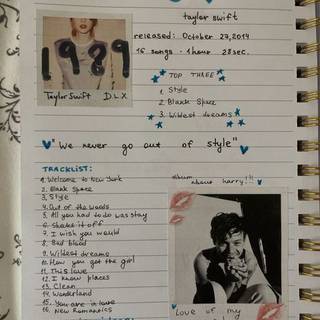 taylor swift
released: October 27, 2014
16 songs - 1 hour 28sec.
1989
Taylor Swift D.L.X
TOP THREE
1. Style
2. Blank Space
3. Wildest dreams
"We never go out of style"
TRACKLIST:
1. Welcome to New York
2. Blank Space
3. Style
4. Out of the woods
5. All you had to do was stay
6. Shake it off
7. I wish you would
8. Bad blood
9. Wildest dreams
10. How you get the girl
11. This love
12. I know places
13. Clean
14. Wonderland
15. You are in love
16. New Romantics
album
about harry!!!
Love of my